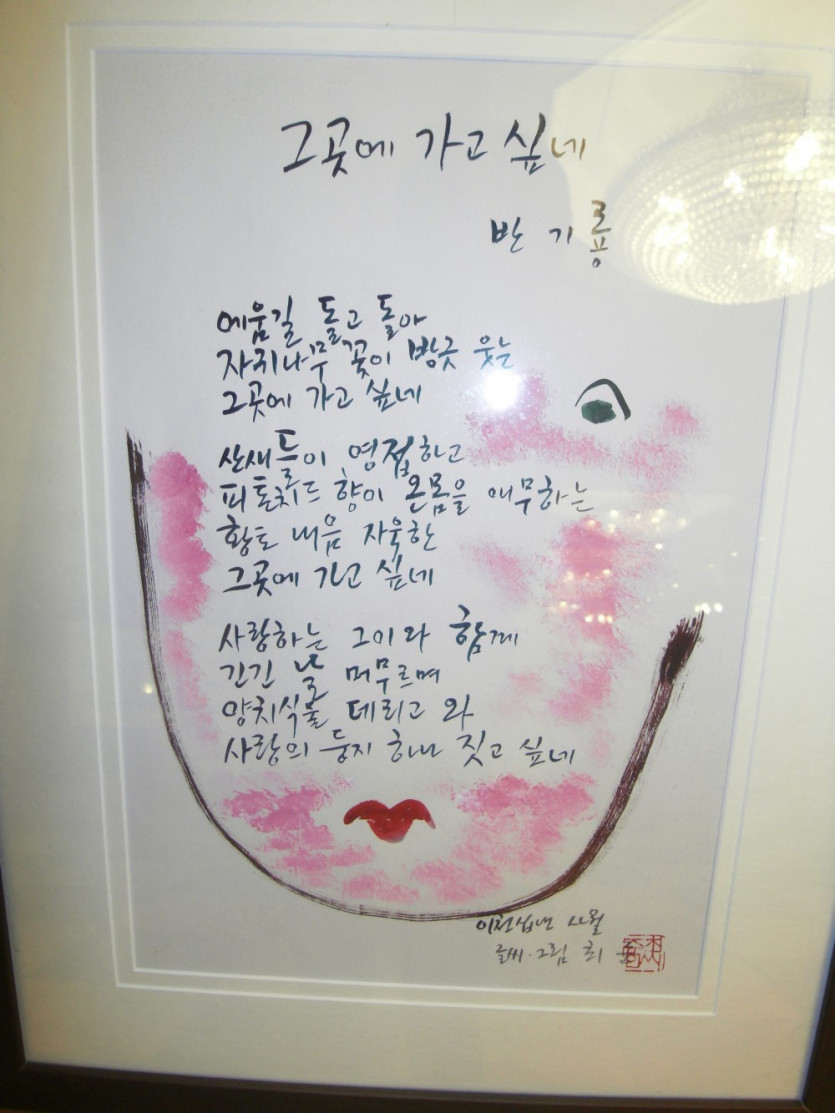 그곳에 가고 싶네
반 기 룡
에움길 돌고 돌아
자귀나무 꽃이 방긋 웃는
그곳에 가고 싶네
산새들이 영접하고
피톤치드 향이 온몸을 애무하는
황토 내음 자욱한
그곳에 가고 싶네
사랑하는 그이와 함께
긴긴 날 머무르며
양치식물 데리고 와
사랑의 둥지 하나 짓고 싶네
이천십년 사월
글씨·그림 희